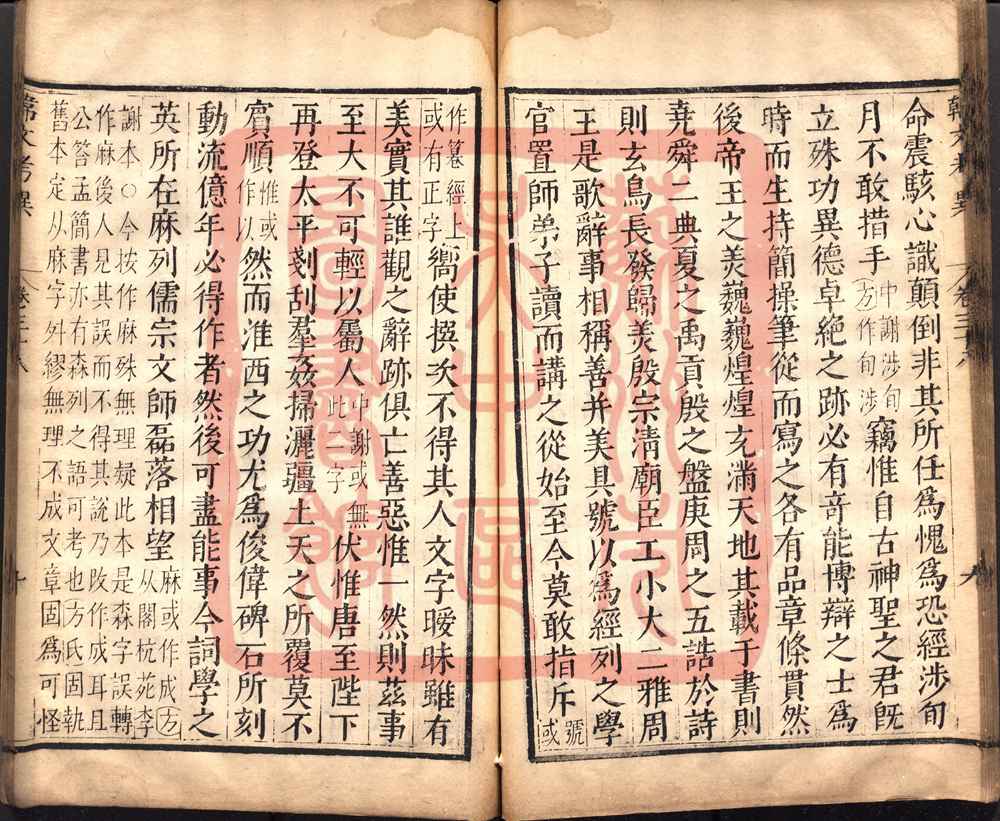 命震駭心識顛倒非其所任爲愧爲恐經涉旬
月不敢措手中謝涉旬方作旬涉竊惟自古神聖之君旣
立殊功異德卓絶之跡必有竒能博辯之士爲
時而生持簡操筆從而寫之各有品章條貫然
後帝王之美巍巍煌煌充滿天地其載于書則
堯舜二典夏之禹貢殷之盤庚周之五誥於詩
則玄鳥長發歸美殷宗清廟臣工小大二雅周
王是歌辭事相稱善并美具號以爲經列之學
官置師弟子讀而講之從始至今莫敢指斥號或
作纂經上或有正字嚮使撰次不得其人文字曖昧雖有
美實其誰觀之辭跡俱亡善惡惟一然則茲事
至大不可輕以屬人中謝或無此二字伏惟唐至陛下
再登太平剗刮羣姦掃灑疆土天之所覆莫不
賓順惟或作以然而淮西之功尤爲俊偉碑石所刻
動流億年必得作者然後可盡能事今詞學之
英所在麻列儒宗文師磊落相望麻或作成方從閣杭苑李
謝本○今按作麻殊無理疑此本是森字誤轉
作麻後人見其誤而不得其說乃改作成耳且
公答孟簡書亦有森列之語可考也方氏固執
舊本定从麻字舛繆無理不成文章固爲可怪
韓文考異
卷三十八
十